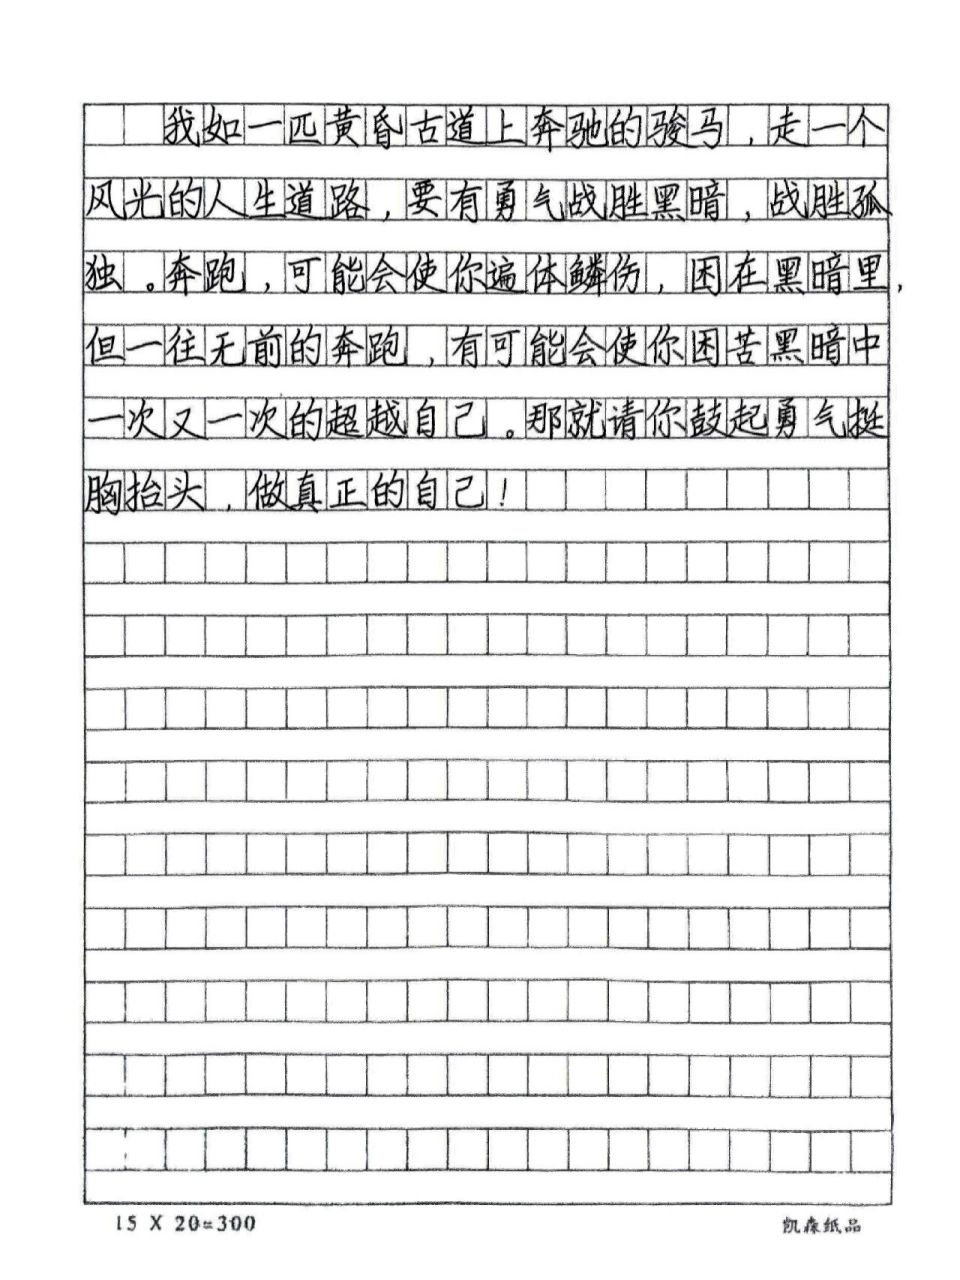 我如一匹黄昏古道上奔驰的骏马，走一个
风光的人生道路，要有勇气战胜黑暗，战胜孤
独。奔跑，可能会使你遍体鳞伤，困在黑暗里，
但一往无前的奔跑，有可能会使你困苦黑暗中
一次又一次的超越自己。那就请你鼓起勇气挺
胸抬头，做真正的自己！
15 X 20=300
凯森纸品